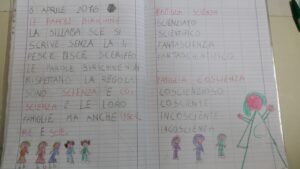 8 APRILE 2016
LE PAROLE BIRICHINE
LA SILLABA SCE SI
SCRIVE SENZA LA I:
PESCE PISCE SCERIFFO
LE PAROLE BIRICHINE NON
RISPETTANO LA REGOLA
SONO SCIENZA E CO
SCIENZA E LE LORO
FAMIGLIE MA ANCHE
E
FAMIGLIA SCIENZA
SCIENZIATO
SCIENTIFICO
FANTASCIENZA
FANTASCIENTIFICO
FAMIGLIA COSCIENZA
COSCIENZIOSO
COSCIENTE
INCOSCIENTE
INCOSCIENZA